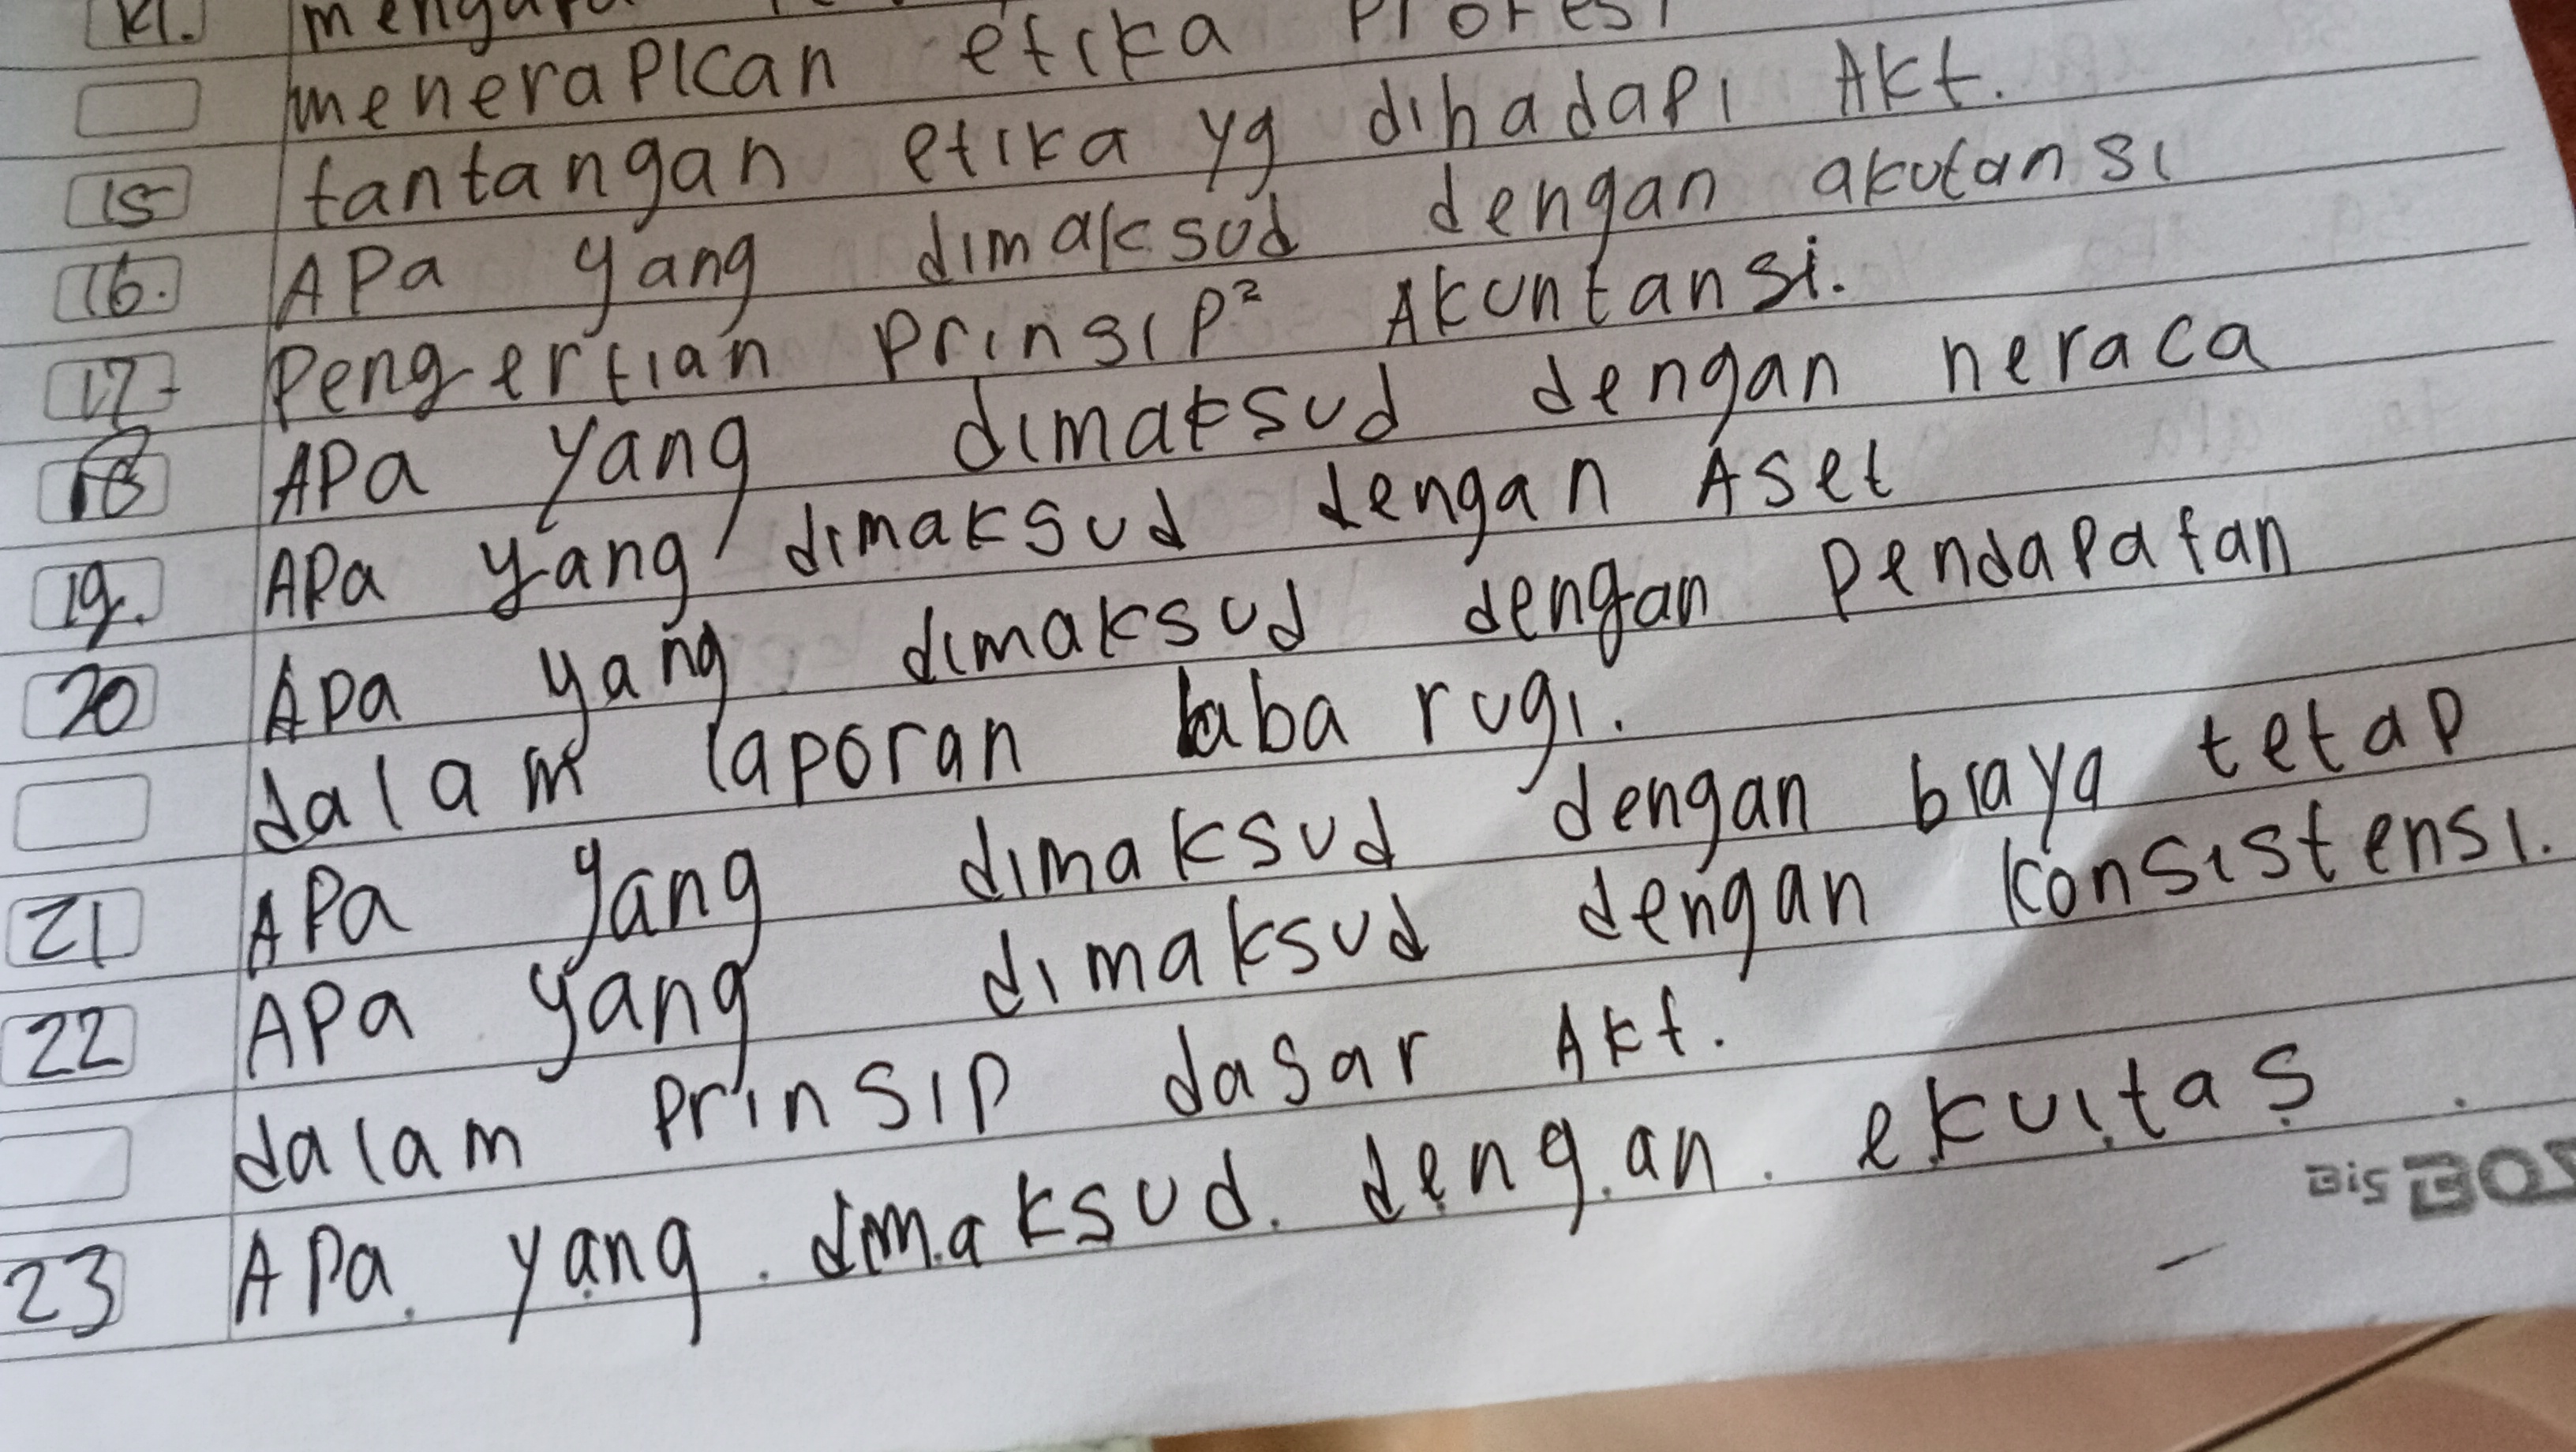 14.
menerapkan etika Profesi
15 tantangan etika yg dihadapi Akt.
16. APa yang dimaksud dengan akutansi
17. Pengertian Prinsip² Akuntansi.
18 APa yang dimaksud dengan neraca
19. APa yang dimaksud dengan Aset
20 APa yang dimaksud dengan Pendapatan
dalam laporan laba rugi.
21 APa yang dimaksud dengan biaya tetap
22 APa yang dimaksud dengan konsistensi.
dalam Prinsip dasar Akt.
23 APa yang dimaksud dengan ekuitas